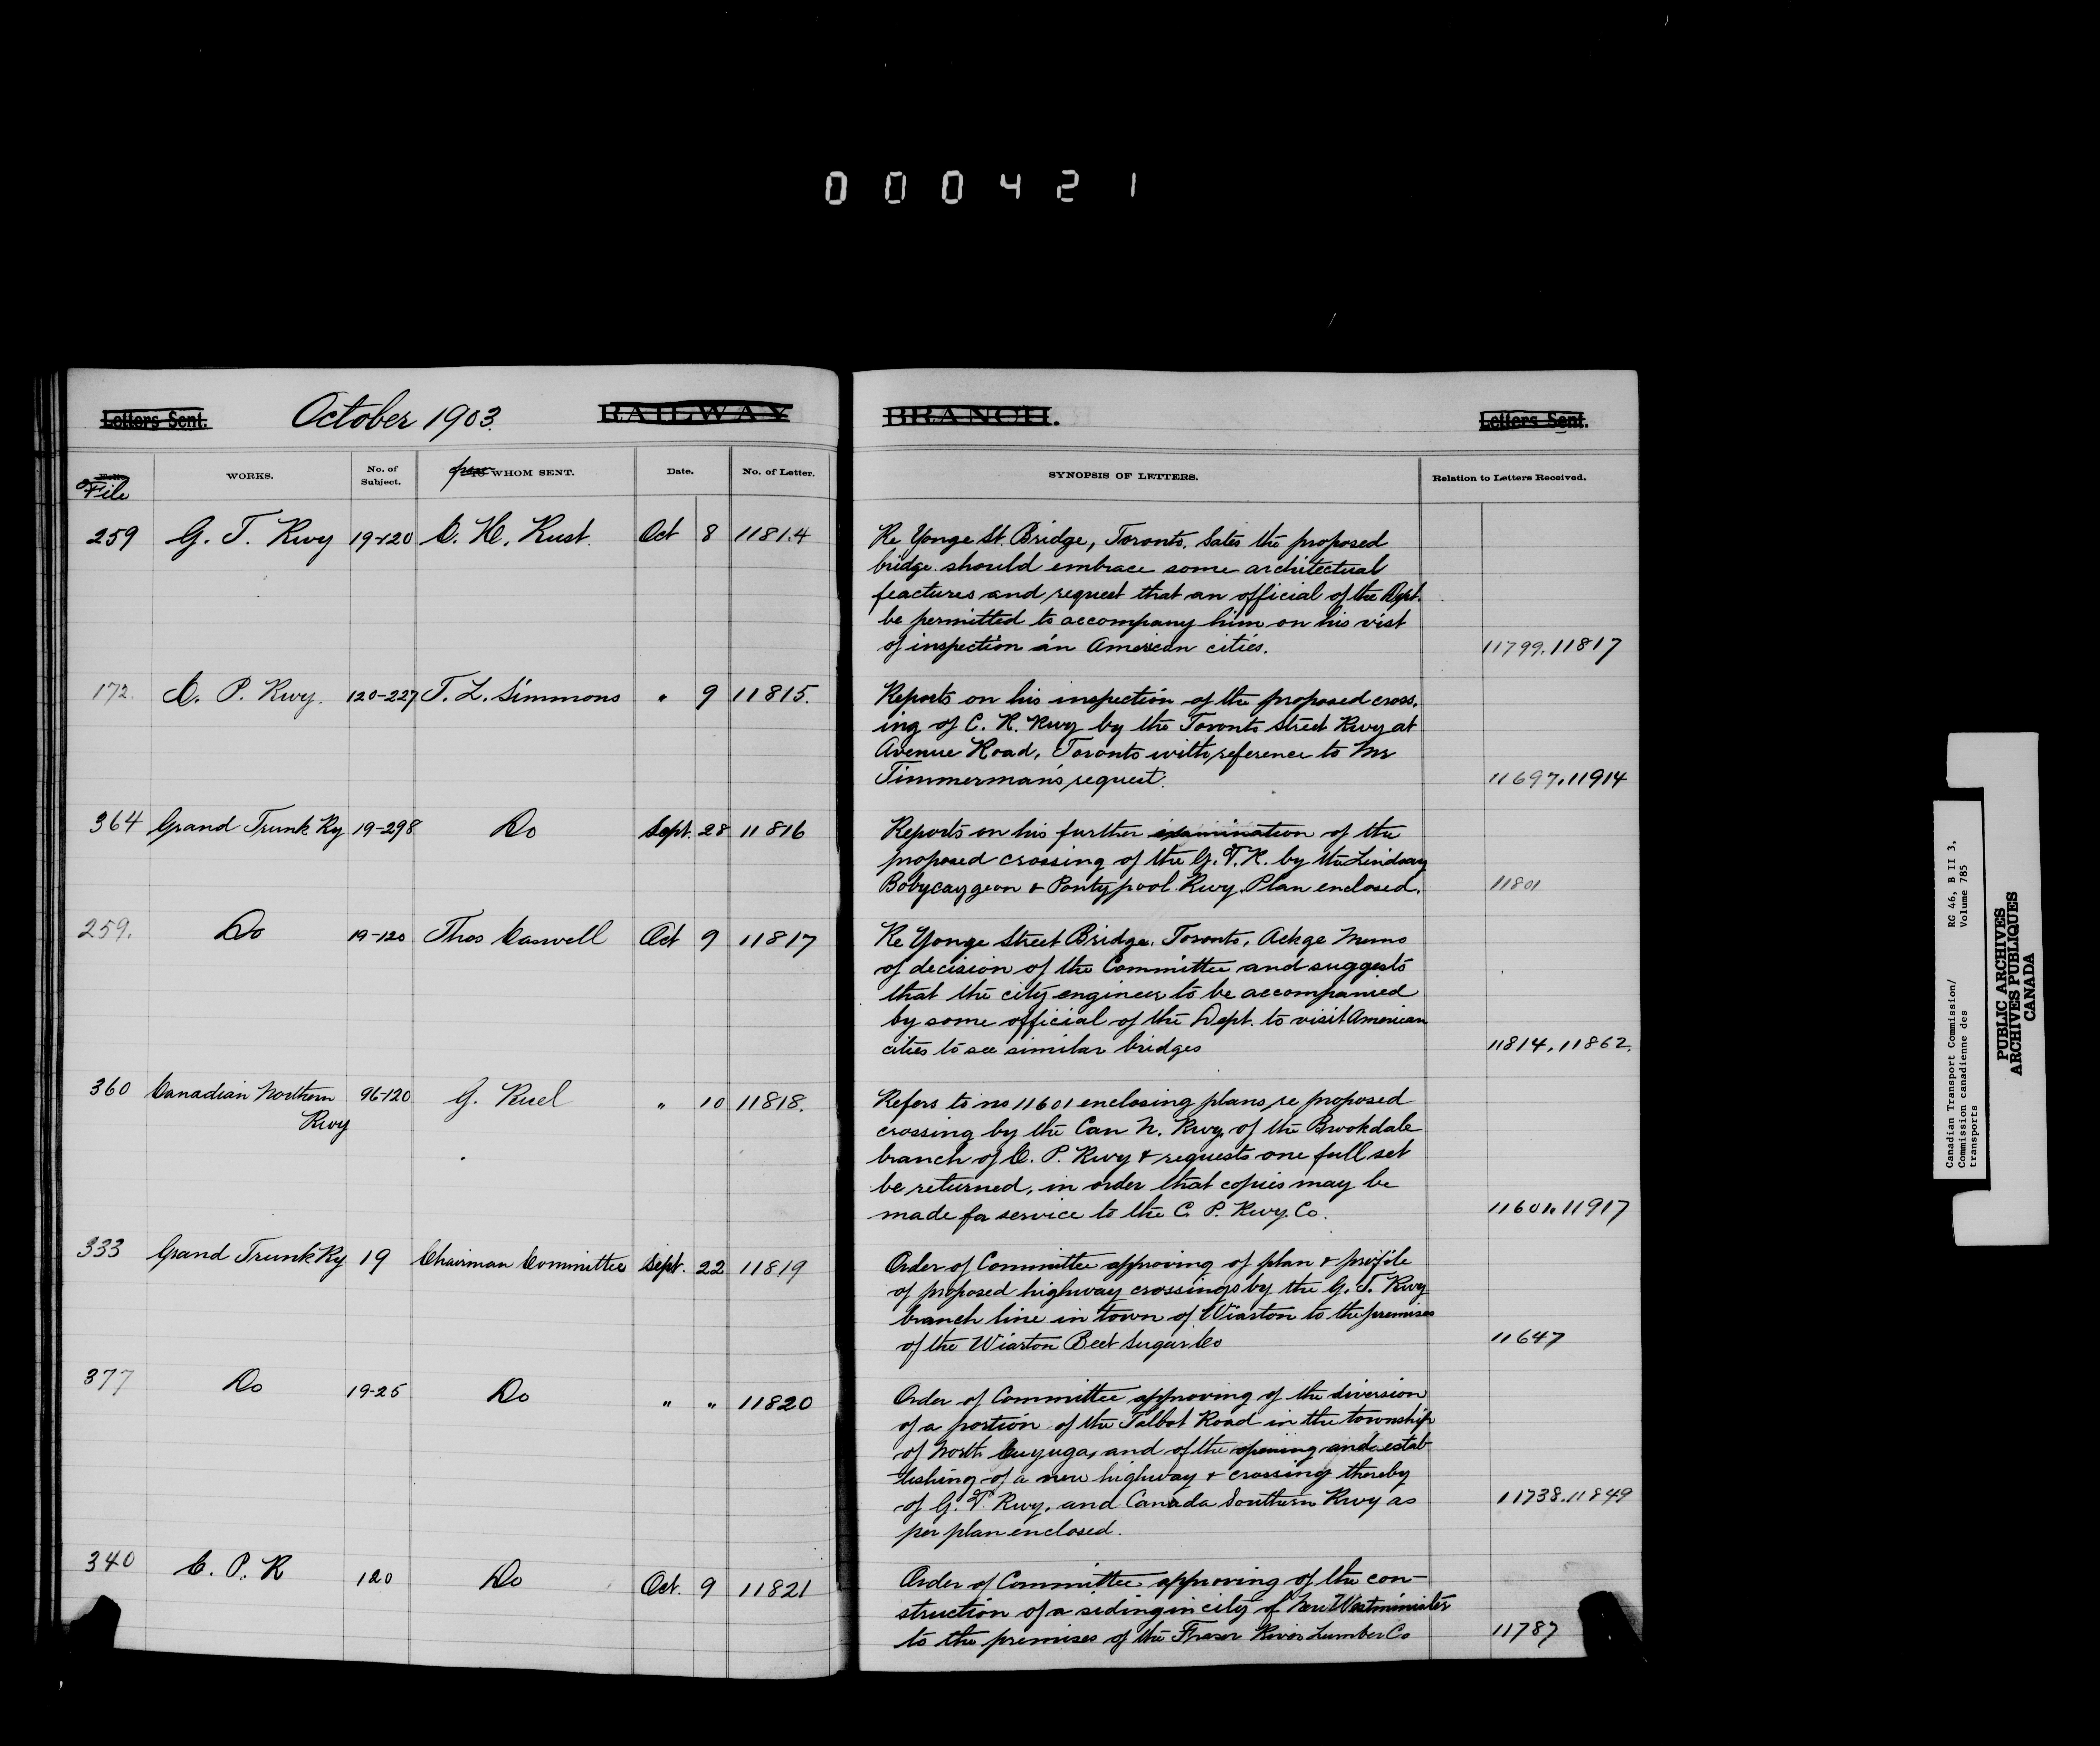 000421
Letters Sent. October 1903. RAILWAY BRANCH. Letters Sent.
File WORKS. No. of Subject. from WHOM SENT. Date. No. of Letter. SYNOPSIS OF LETTERS. Relation to Letters Received.
259 G. T. Rwy 19-120 C. H. Rust. Oct 8 11814 Re Yonge St. Bridge, Toronto. Sates the proposed
bridge should embrace some architectual
feactures and request that an official of the Dept.
be permitted to accompany him on his vist
of inspection in American cities. 11799.11817
172. C. P. Rwy. 120-227 T. L. Simmons " 9 11815. Reports on his inspection of the proposed cross-
ing of C. R. Rwy by the Toronto Street Rwy at
Avenue Road, Toronto with reference to Mr
Timmerman's request. 11697.11914
364 Grand Trunk Ry 19-298 Do Sept. 28 11816 Reports on his further examination of the
proposed crossing of the G. T. R. by the Lindsay
Bobycaygeon & Pontypool Rwy. Plan enclosed. 11801
259. Do 19-120 Thos Caswell Oct 9 11817 Re Yonge Street Bridge, Toronto, Ackge Memo
of decision of the Committee and suggests
that the city engineer to be accompanied
by some official of the Dept. to visit American
cities to see similar bridges 11814.11862.
360 Canadian Northern Rwy 96-120 G. Ruel " 10 11818. Refers to no 11601 enclosing plans re proposed
crossing by the Can N. Rwy. of the Brookdale
branch of C. P. Rwy & requests one full set
be returned, in order that copies may be
made for service to the C. P. Rwy. Co. 11601.11917
333 Grand Trunk Ry 19 Chairman Committee Sept. 22 11819 Order of Committee approving of plan & profile
of proposed highway crossings by the G. T. Rwy
branch line in town of Wiarton to the premises
of the Wiarton Beet Sugar Co 11647
377 Do 19-25 Do " " 11820 Order of Committee approving of the diversion
of a portion of the Talbot Road in the township
of North Cuyuga, and of the opening and estab-
lishing of a new highway & crossing thereby
of G. T. Rwy. and Canada Southern Rwy as 11738.11849
per plan enclosed.
340 C. P. R 120 Do Oct. 9 11821 Order of Committee approving of the con-
struction of a siding in city of New Westminister
to the premises of the Fraser River Lumber Co 11787
Canadian Transport Commission/ RG 46, B II 3,
Commission canadienne des Volume 785
transports
PUBLIC ARCHIVES
ARCHIVES PUBLIQUES
CANADA